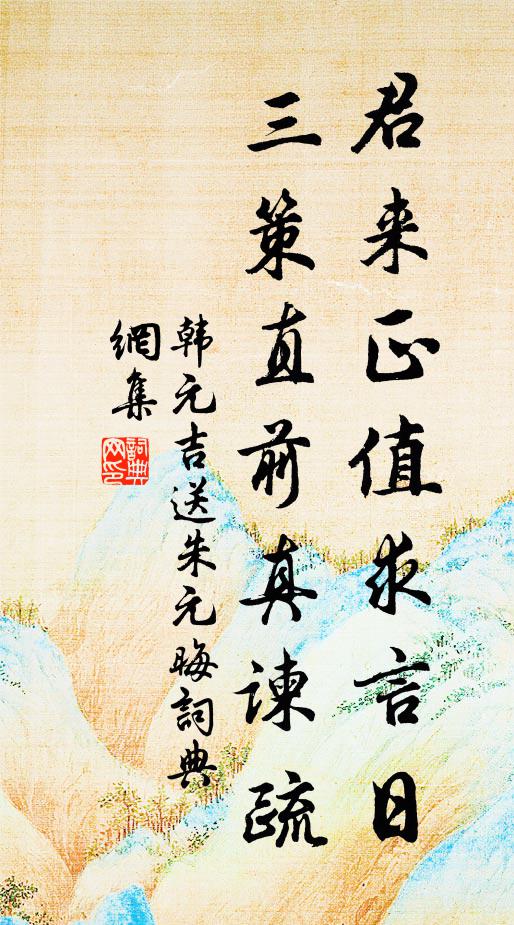 君来正值求言日
三策直前真谏疏
韩元吉送朱元晦詞典
網集
詞典網印